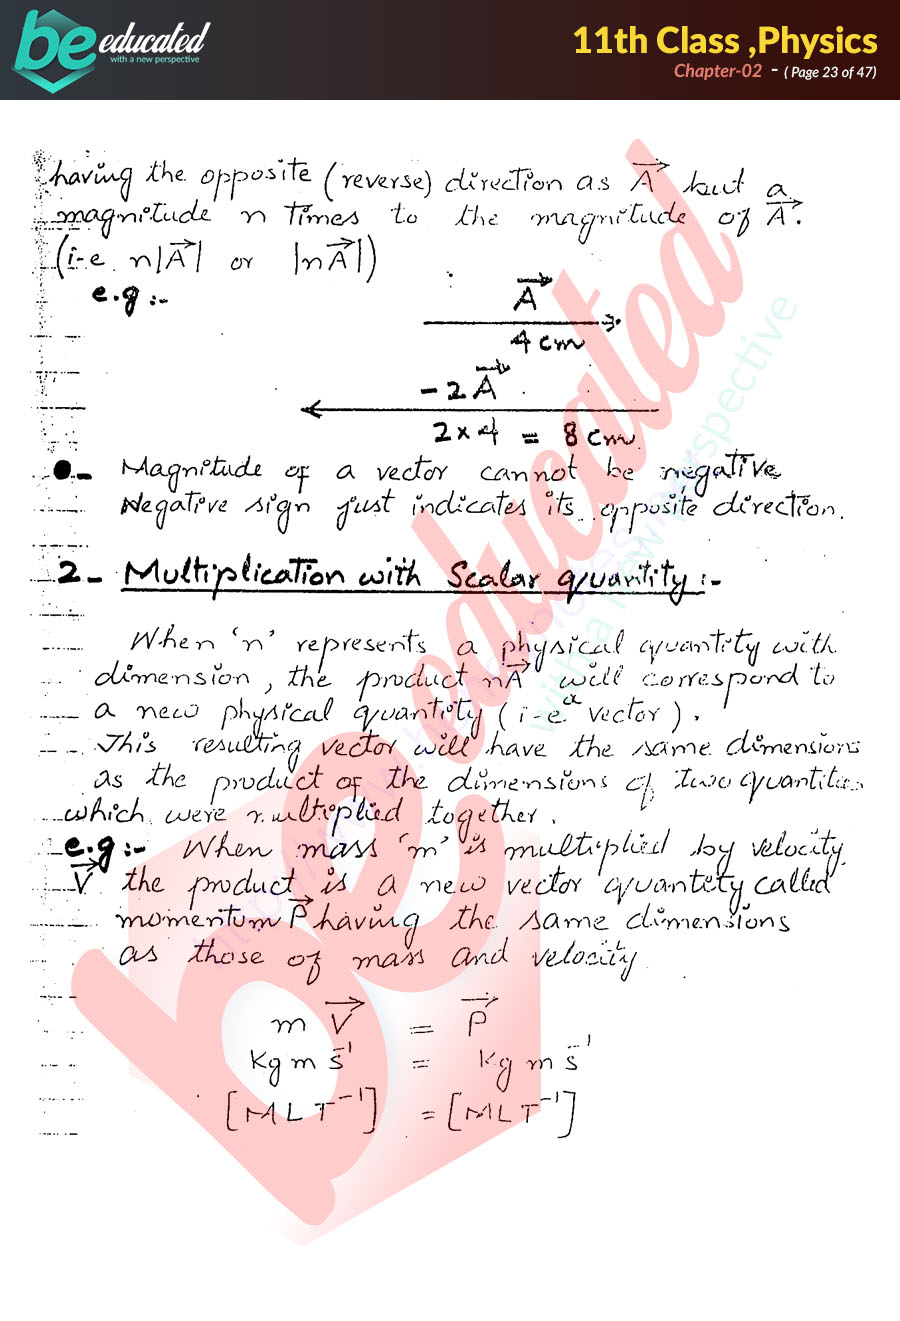 be educated
with a new perspective
11th Class ,Physics
Chapter-02 - ( Page 23 of 47)
having the opposite (reverse) direction as A⃗ but a
magnitude n times to the magnitude of A⃗.
(i-e n|A⃗| or |nA⃗|)
e.g :-
A⃗
4 cm
-2A⃗
2×4 = 8 cm
●- Magnitude of a vector cannot be negative
Negative sign just indicates its opposite direction.
2- Multiplication with Scalar quantity:-
When 'n' represents a physical quantity with
dimension, the product nA⃗ will correspond to
a new physical quantity (i-e a vector).
This resulting vector will have the same dimensions
as the product of the dimensions of two quantities
which were multiplied together.
e.g :- When mass 'm' is multiplied by velocity
V⃗ the product is a new vector quantity called
momentum P⃗ having the same dimensions
as those of mass and velocity
m V⃗ = P⃗
Kg m s⁻¹ = Kg m s⁻¹
[MLT⁻¹] = [MLT⁻¹]
be educated